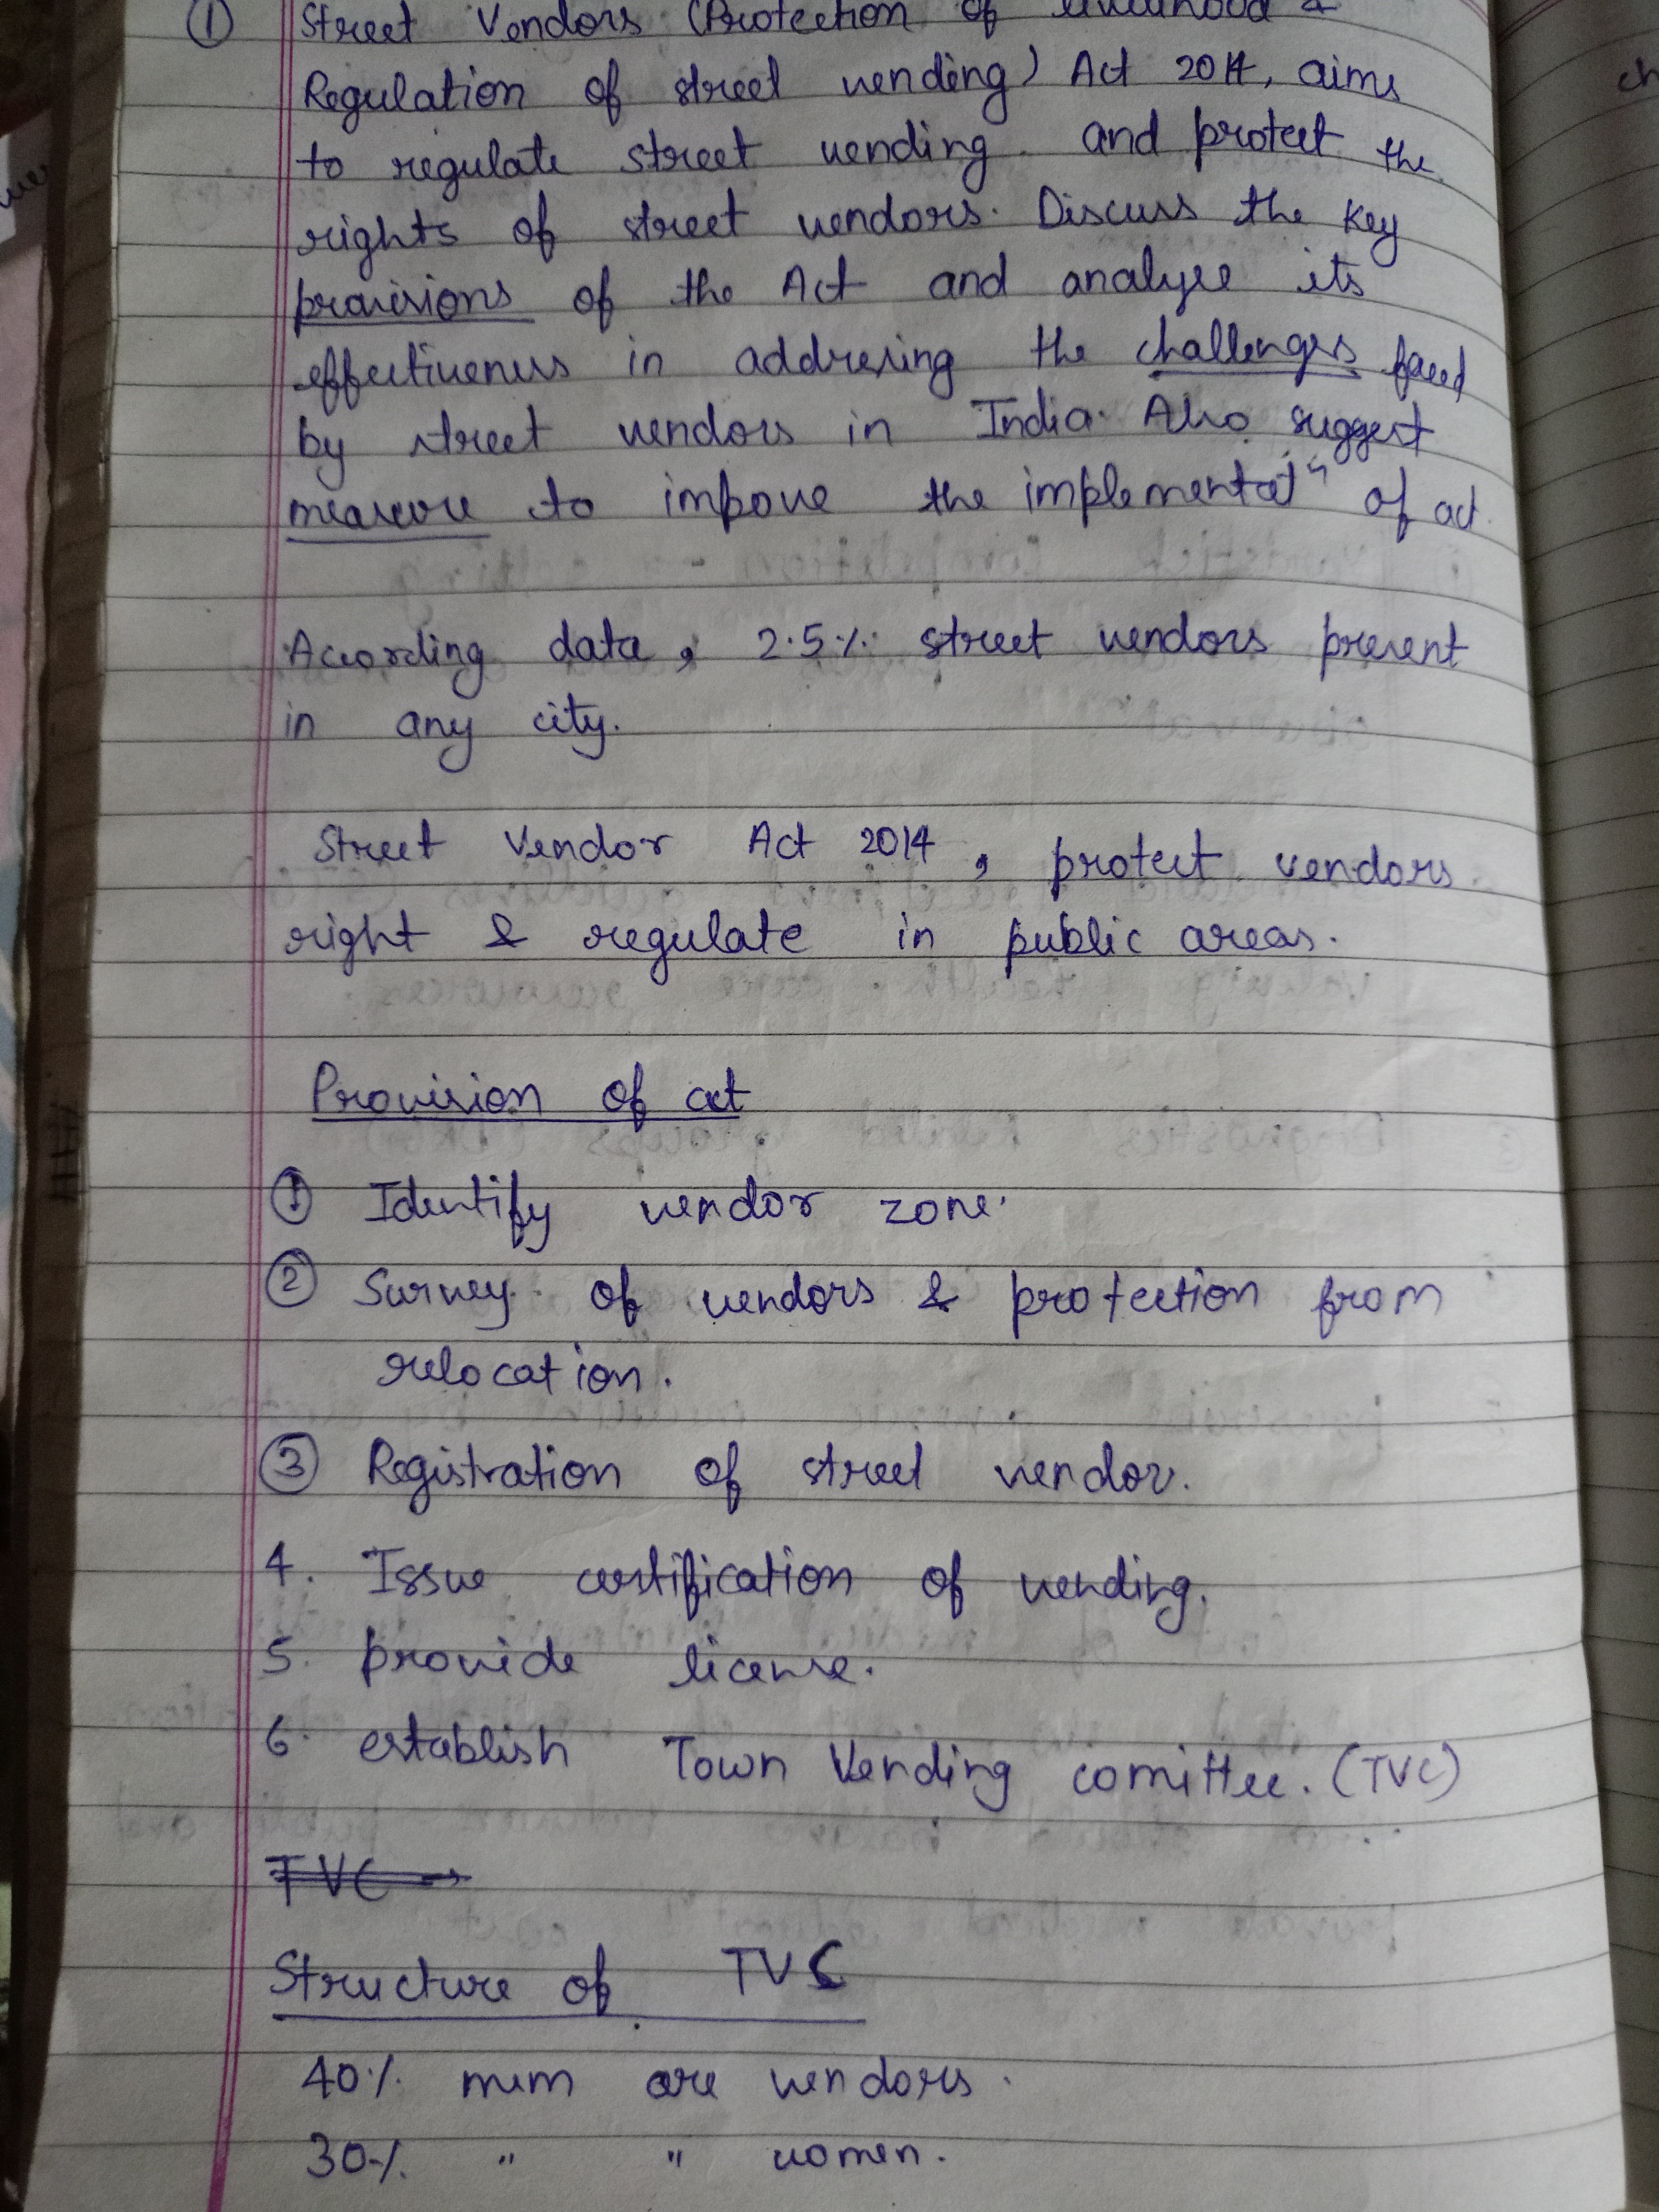 ① Street Vendors (Protection of livelihood &
Regulation of street vending) Act 2014, aims
to regulate street vending. and protect the
rights of street vendors. Discuss the key
provisions of the Act and analyse its
effectiveness in addressing the challenges faced
by street vendors in India. Also suggest
measure to impove the implementatⁿ of act.
According data, 2.5% street vendors present
in any city.
Street Vendor Act 2014, protect vendors
right & regulate in public areas.
Provision of act
① Identify vendor zone.
② Survey of vendors & protection from
relocation.
③ Registration of street vendor.
4. Issue certification of vending.
5. provide license.
6. establish Town Vending comittee. (TVC)
TVC →
Structure of TVC
40% mem are vendors.
30% " " women.